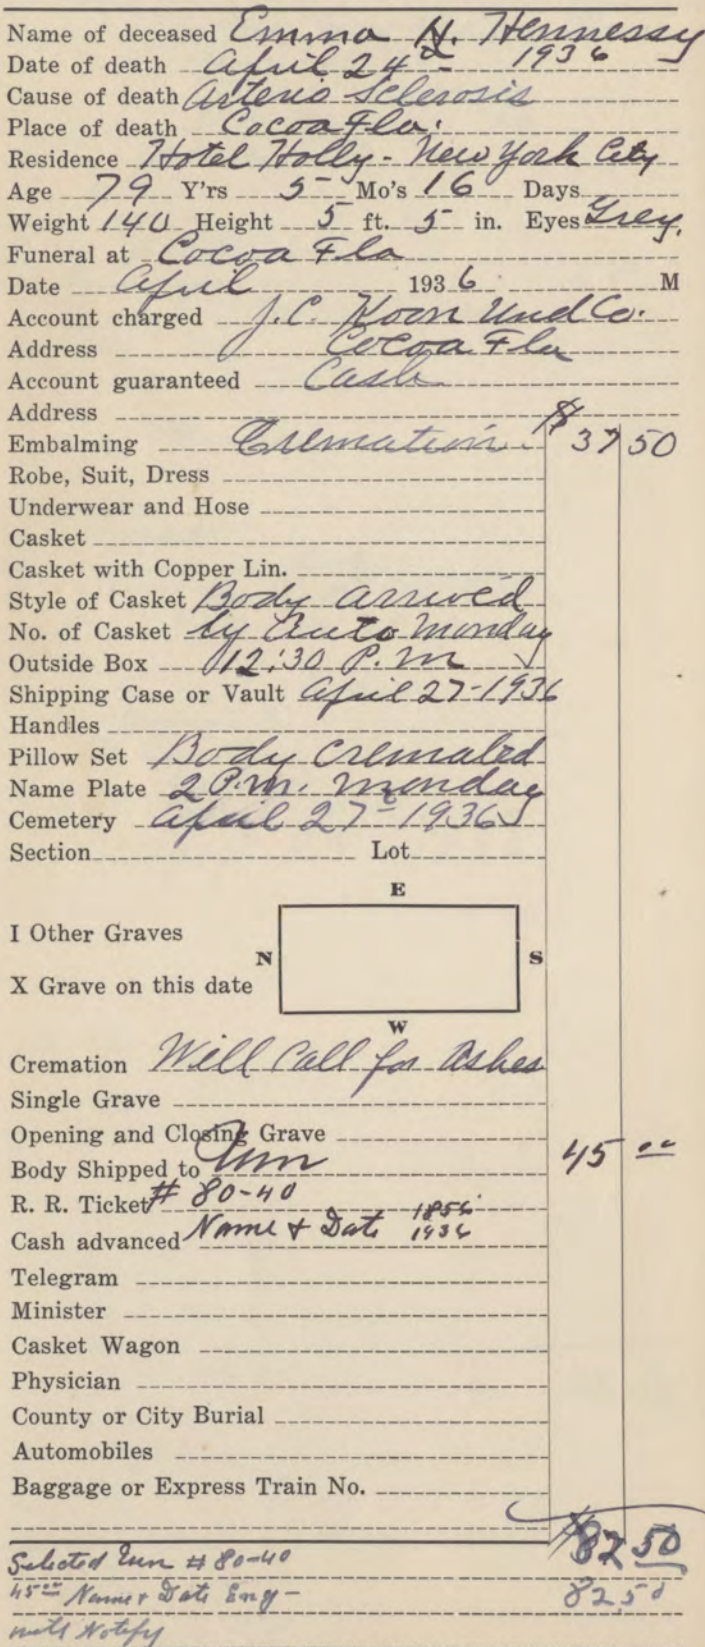 Name of deceased Emma H. Hennessy
Date of death April 24th 1936
Cause of death Arterio Sclerosis
Place of death Cocoa Fla.
Residence Hotel Holly - New York City
Age 79 Y'rs 5 Mo's 16 Days
Weight 140 Height 5 ft. 5 in. Eyes Grey.
Funeral at Cocoa Fla
Date April 1936 M
Account charged J.C. Koon Und Co.
Address Cocoa Fla
Account guaranteed Cash
Address
Embalming Cremation $ 37 50
Robe, Suit, Dress
Underwear and Hose
Casket
Casket with Copper Lin.
Style of Casket Body arrived
No. of Casket by Auto Monday
Outside Box 12:30 P.M
Shipping Case or Vault April 27-1936
Handles
Pillow Set Body Cremated
Name Plate 2 P.M. Monday
Cemetery April 27th 1936
Section Lot
E
I Other Graves
N S
X Grave on this date
W
Cremation Will Call for Ashes
Single Grave
Opening and Closing Grave
Body Shipped to Urn 45 00
R. R. Ticket # 80-40
Cash advanced Name & Date 1856 1936
Telegram
Minister
Casket Wagon
Physician
County or City Burial
Automobiles
Baggage or Express Train No.
$82 50
Selected Urn # 80-40
45 00 Name & Date Eng - 82.50
will Notify